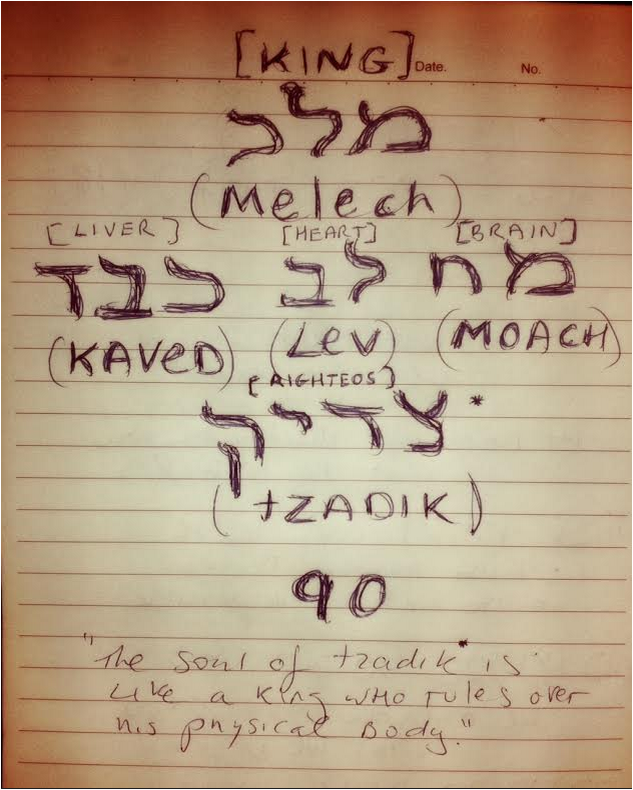 [KING] Date. No.
מלכ
(Melech)
[LIVER] [HEART] [BRAIN]
מח לב כבד
(KAVED) (LeV) (MOACH)
[RIGHTEOS]
צדיק*
(tZADIK)
90
"The soul of tzadik* is
Like a king who rules over
his physical Body."